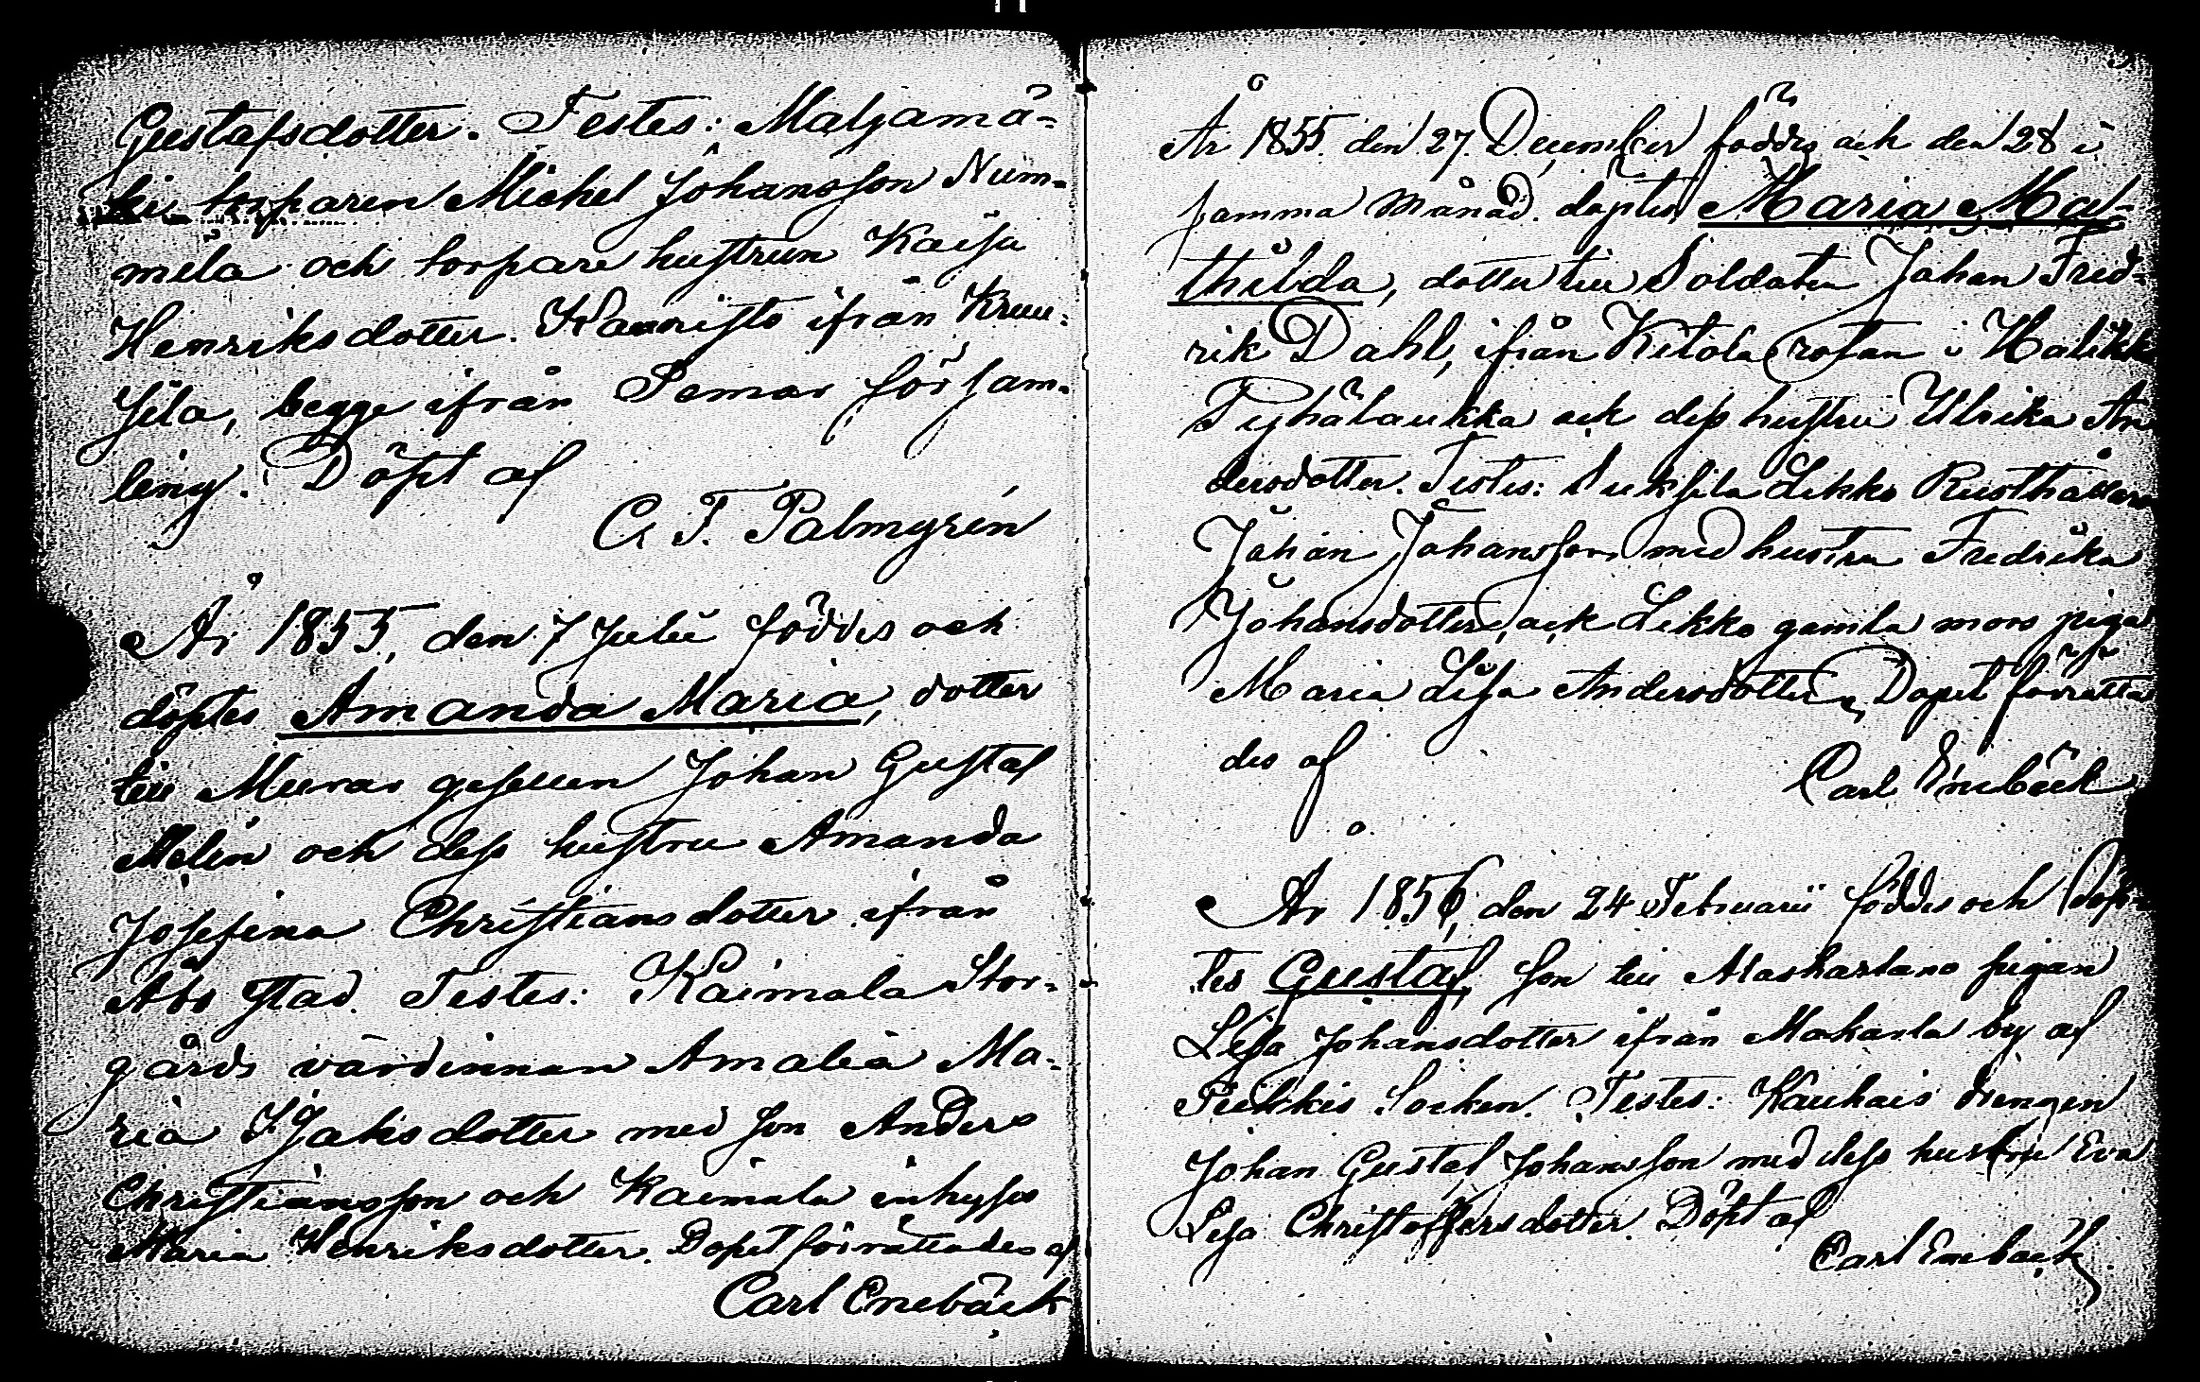 Gustafsdotter. Testes: Maljamä-
ki torparen Michel Johansson Num-
mila och torpare hustrun Kaisa
Henriksdotter. Kauristo ifrån Kruu-
sila, begge ifrån Pemar försam-
ling. Döpt af
C. F. Palmgrén
År 1855, den 7 Julii föddes och
döptes Amanda Maria, dotter
till Murar gesellen Johan Gustaf
Melin och dess hustru Amanda
Josefina Christiansdotter ifrån
Åbo stad. Testes: Kaimala Stor-
gårds värdinnan Amalia Ma-
ria Isaksdotter med son Anders
Christiansson och Kaimala inhyses
Maria Henriksdotter. Dopet förrättades af
Carl Enebäck
År 1855 den 27 December föddes och den 28 i
samma månad döptes Maria Mat-
thilda, dotter till Soldaten Johan Fred-
rik Dahl, ifrån Kitola rotan i Halikko
Pyhälaukka och dess hustru Ulrika An-
dersdotter. Testes: Suksila Likko Rusthållaren
Johan Johansson med hustru Fredrika
Johansdotter, och Likko gamla mors piga
Maria Lisa Andersdotter, Dopet förrätta-
des af
Carl Enebäck
År 1856, den 24 Februarii föddes och döp-
tes Gustaf, son till Maskarlano pigan
Lisa Johansdotter ifrån Makarla by af
Piikkis Socken. Testes: Kauhais drengen
Johan Gustaf Johansson med dess hustru Eva
Lisa Christoffersdotter. Döpt af
Carl Enebäck